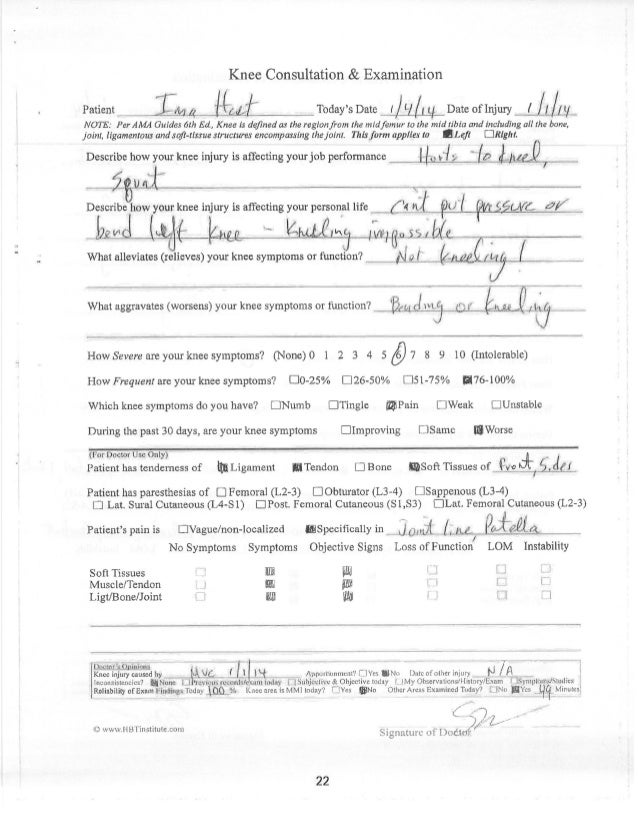 Knee Consultation & Examination
Patient Ima Hurt Today's Date 1/4/14 Date of Injury 1/1/14
NOTE: Per AMA Guides 6th Ed., Knee is defined as the region from the mid femur to the mid tibia and including all the bone,
joint, ligamentous and soft-tissue structures encompassing the joint. This form applies to ☒Left ☐Right.
Describe how your knee injury is affecting your job performance Hurts to kneel,
Squat
Describe how your knee injury is affecting your personal life Can't put pressure or
bend left knee - Kneeling impossible
What alleviates (relieves) your knee symptoms or function? Not kneeling!
What aggravates (worsens) your knee symptoms or function? Bending or kneeling
How Severe are your knee symptoms? (None) 0 1 2 3 4 5 6 7 8 9 10 (Intolerable)
How Frequent are your knee symptoms? ☐0-25% ☐26-50% ☐51-75% ☒76-100%
Which knee symptoms do you have? ☐Numb ☐Tingle ☒Pain ☐Weak ☐Unstable
During the past 30 days, are your knee symptoms ☐Improving ☐Same ☒Worse
(For Doctor Use Only)
Patient has tenderness of ☒Ligament ☒Tendon ☐Bone ☒Soft Tissues of front, sides
Patient has paresthesias of ☐Femoral (L2-3) ☐Obturator (L3-4) ☐Sappenous (L3-4)
☐Lat. Sural Cutaneous (L4-S1) ☐Post. Femoral Cutaneous (S1,S3) ☐Lat. Femoral Cutaneous (L2-3)
Patient's pain is ☐Vague/non-localized ☒Specifically in Joint line, Patella
No Symptoms Symptoms Objective Signs Loss of Function LOM Instability
Soft Tissues ☐ ☒ ☒ ☐ ☐ ☐
Muscle/Tendon ☐ ☒ ☒ ☐ ☐ ☐
Ligt/Bone/Joint ☐ ☒ ☒ ☐ ☐ ☐
Doctor's Opinions
Knee injury caused by MVC 1/1/14 Apportionment? ☐Yes ☒No Date of other injury N/A
Inconsistencies? ☒None ☐Previous records/exam today ☐Subjective & Objective today ☐My Observations/History/Exam ☐Symptoms/Studies
Reliability of Exam Findings Today 100 % Knee area is MMI today? ☐Yes ☒No Other Areas Examined Today? ☐No ☒Yes 44 Minutes
© www.HBTinstitute.com
Signature of Doctor
22